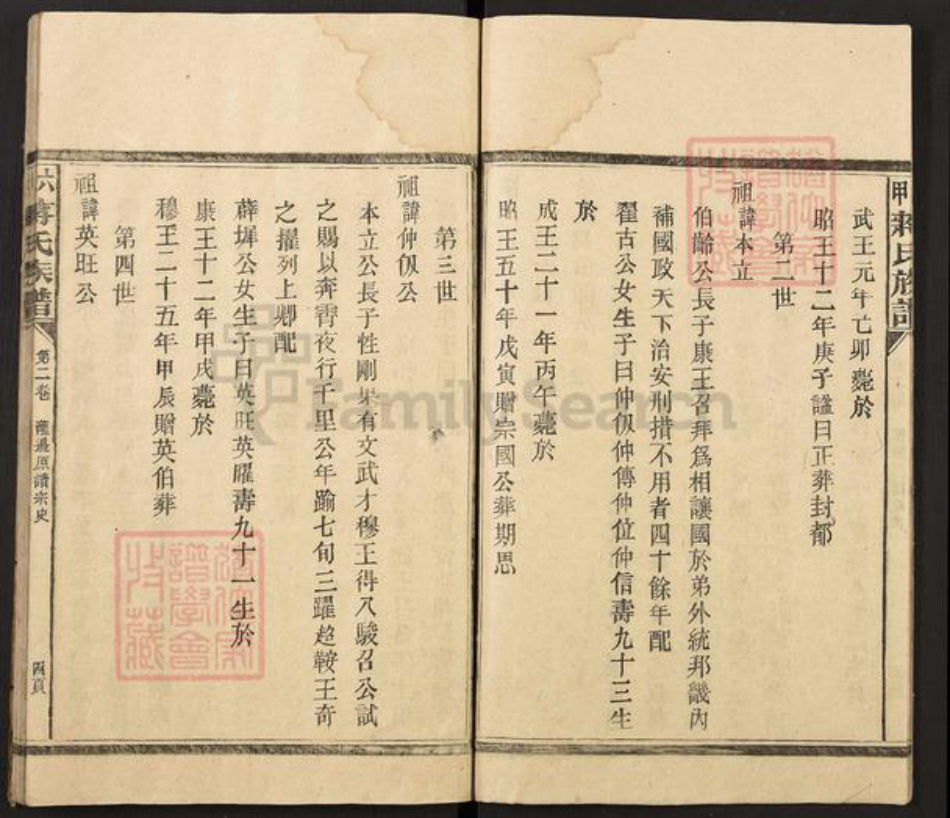 蔣氏族譜
武王元年乙卯薨於
昭王十二年庚子諡曰正葬封都
第二世
祖諱本立
伯齡公長子康王召拜爲相讓國於弟外統邦畿內
補國政天下治安刑措不用者四十餘年配
翟古公女生子曰仲伋仲傳仲位仲信壽九十三生
於
成王二十一年丙午薨於
昭王五十年戊寅贈宗國公葬期思
第三世
祖諱仲伋公
本立公長子性剛果有文武才穆王得八駿召公試
之賜以奔霄夜行千里公年踰七旬三躍趋鞍王奇
之擢列上卿配
薛墀公女生子曰英旺英曜壽九十一生於
康王十二年甲戌薨於
穆王二十五年甲辰贈英伯葬
第四世
祖諱英旺公
蔣氏族譜
第二卷
邊原讀宗史
四頁
譜學會
收藏
FamilySearch